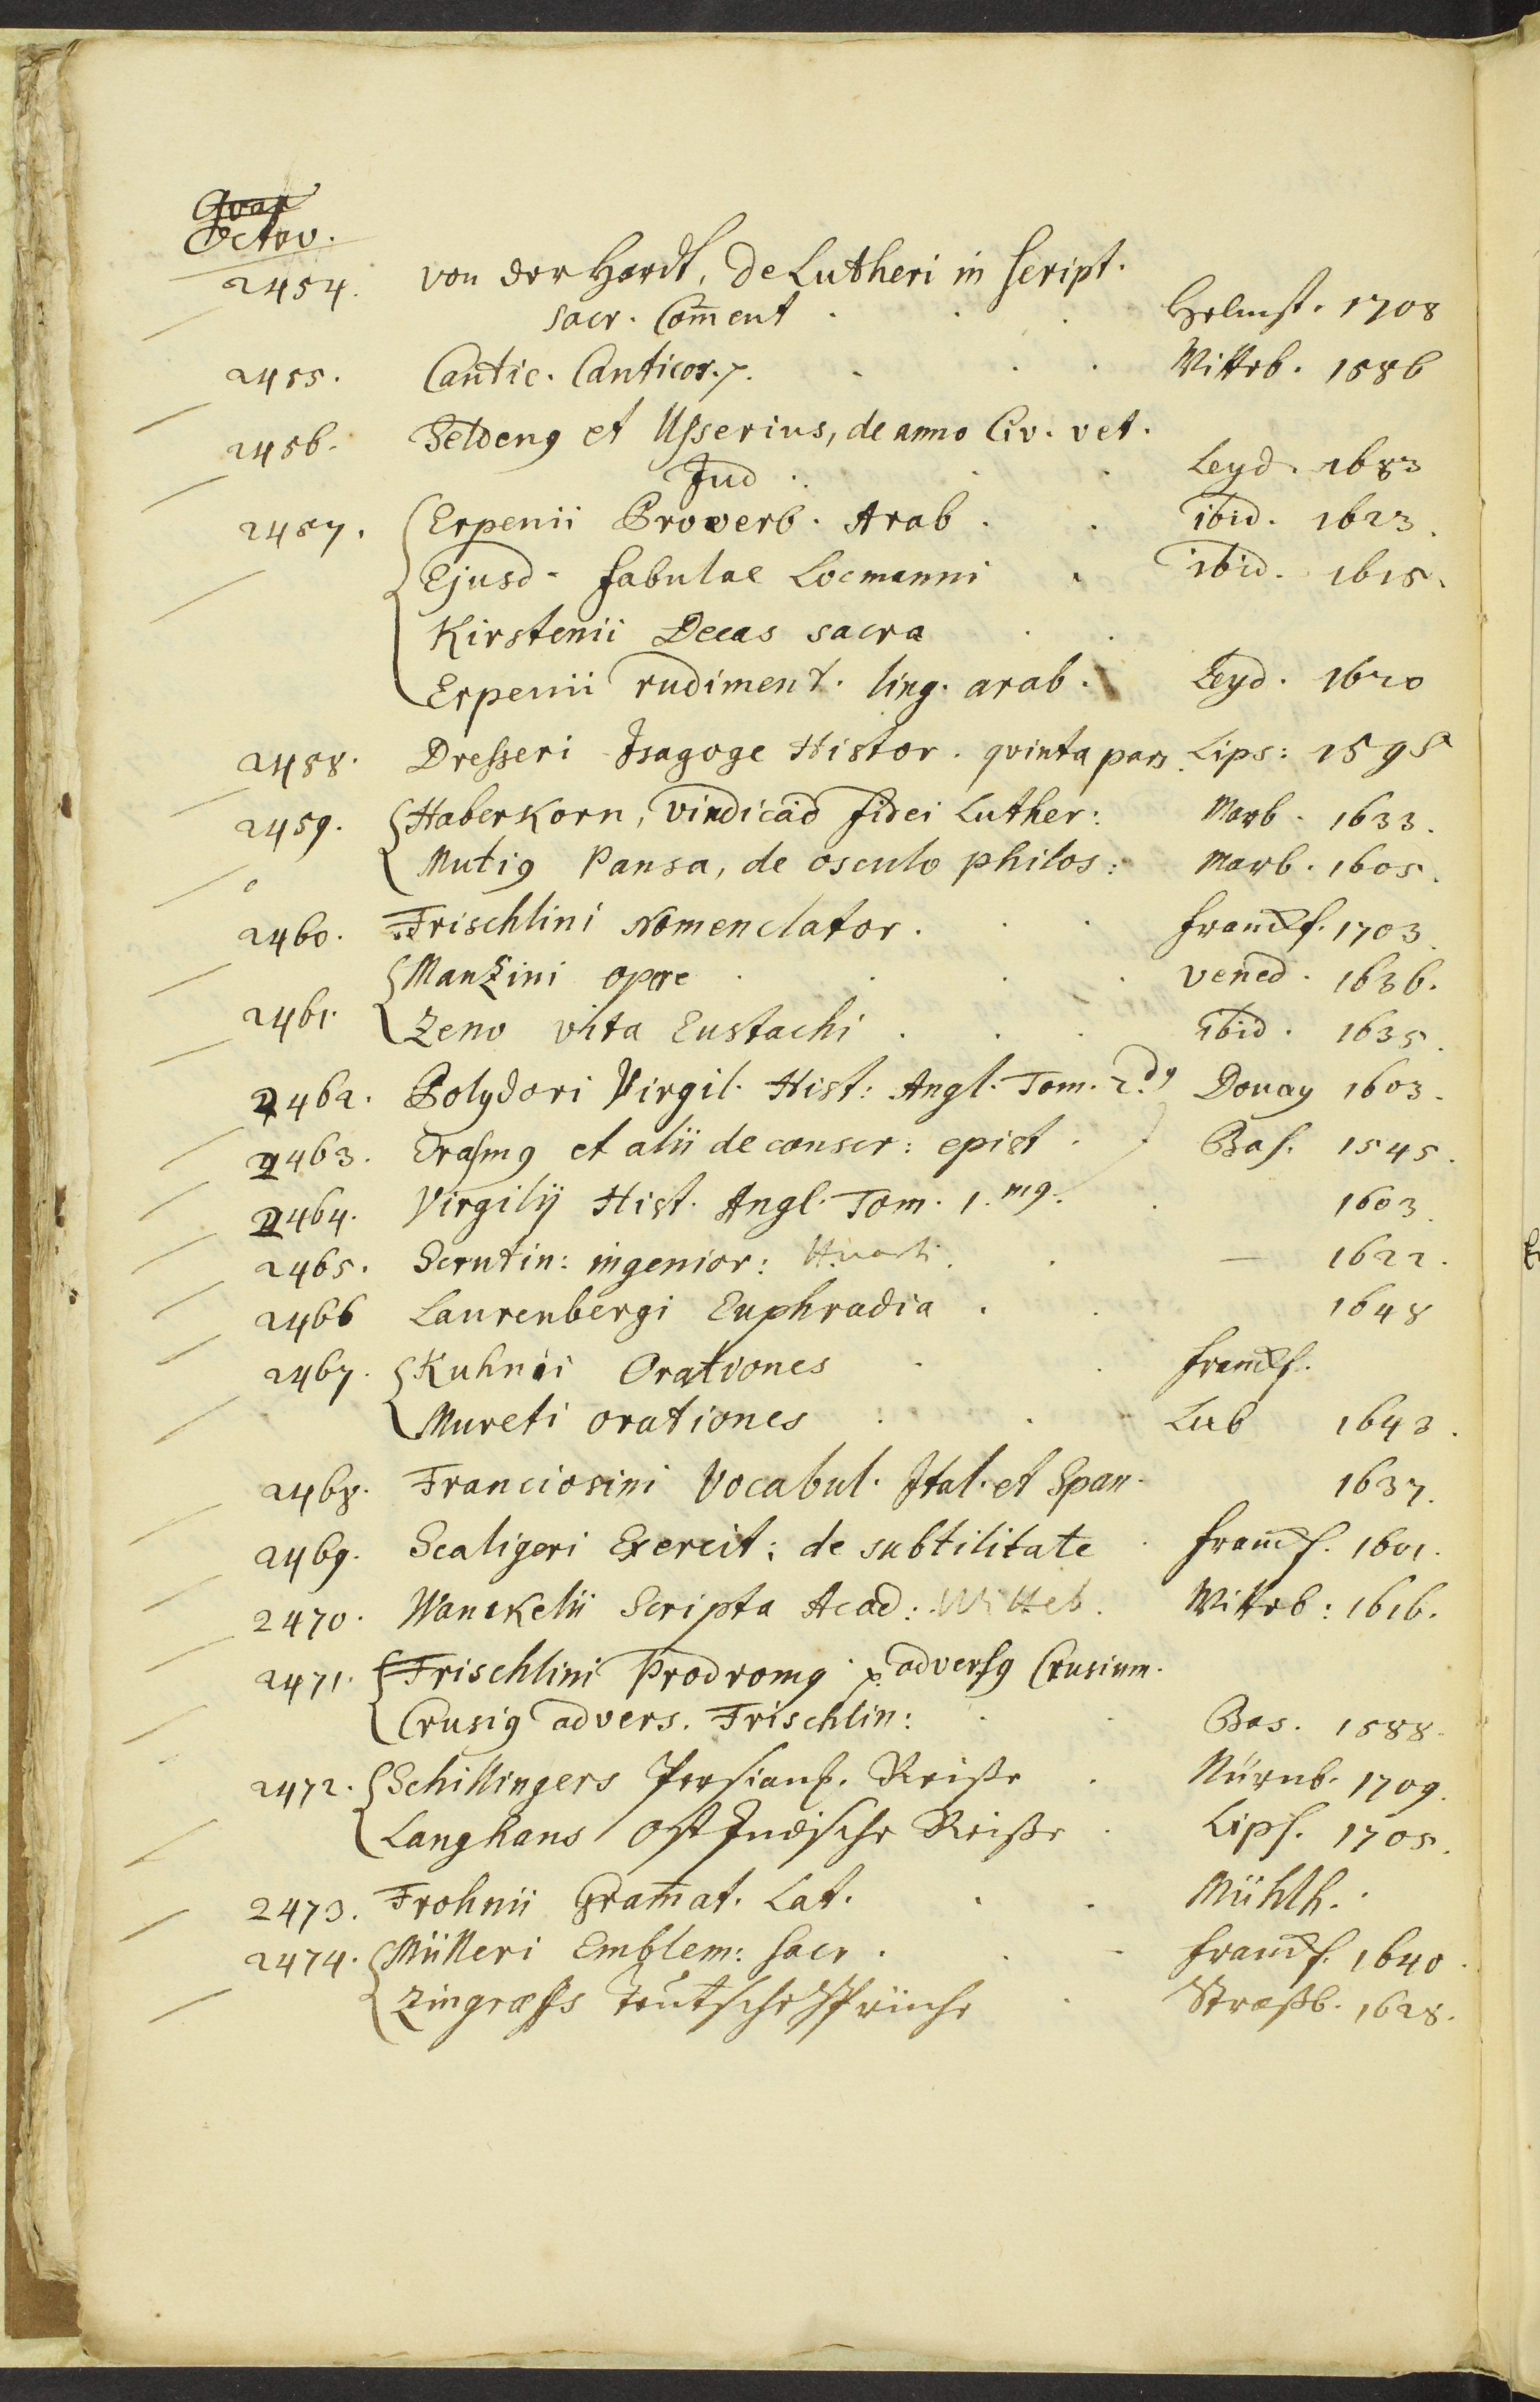 Quar
Octav.
2454. von der Hardt, de Lutheri in script.
sacr. Com̄ent . . . Helmst. 1708
2455. Cantic. Canticor. . . . Wittb. 1586
2456. Seldenꝰ et Usserius, de anno Civ. vet.
Jud . . . Leyd. 1683
2457. Erpenii Proverb. Arab. . ibid. 1623.
Ejusd. fabulae Locmanni . ibid. 1615.
Kirstenii Decas sacra . .
Erpenii rudiment. ling. arab. Leyd. 1620
2458. Dresseri Isagoge Histor. qvinta pars. Lips: 1595
2459. Haberkorn, vindicad fidei Luther: Marb. 1633.
Mutiꝰ Pansa, de osculo philos: Marb. 1605.
2460. Frischlini Nomenclator. . . francf. 1703.
Manzini opere . . . vened. 1636.
2461. Zeno vita Eustachi . . . ibid. 1635.
2462. Polydori Virgil. Hist: Angl. Tom. 2.dꝰ Douay 1603.
2463. Erasmꝰ et alii de conscr: epist. Bas. 1545.
2464. Virgilij Hist. Angl. Tom. 1.mꝰ. . 1603.
2465. Scrutin: ingenior: Huarti. . — 1622.
2466 Laurenbergi Euphradia . . 1648
2467. Kuhnii Orationes . . francf.
Mureti orationes . . Lub 1643.
2468. Franciosini Vocabul. Ital. et Span. 1637.
2469. Scaligeri Exercit: de subtilitate . francf. 1601.
2470. Wanckelii Scripta Acad: Witteb. Wittb: 1616.
2471. Frischlini Prodromꝰ p. adversꝰ Crusium.
Crusiꝰ advers. Frischlin: . . Bas. 1588.
2472. Schillingers Persian. Reiße . Nürnb. 1709.
Langhans Ost Indische Reiße . Lips. 1705.
2473. Frohnii Gram̄at. Lat. . . Mühlh.
2474. Mülleri Emblem: sacr. . . francf. 1640.
Zingræfs Teutsche Sprüche . Straßb. 1628.